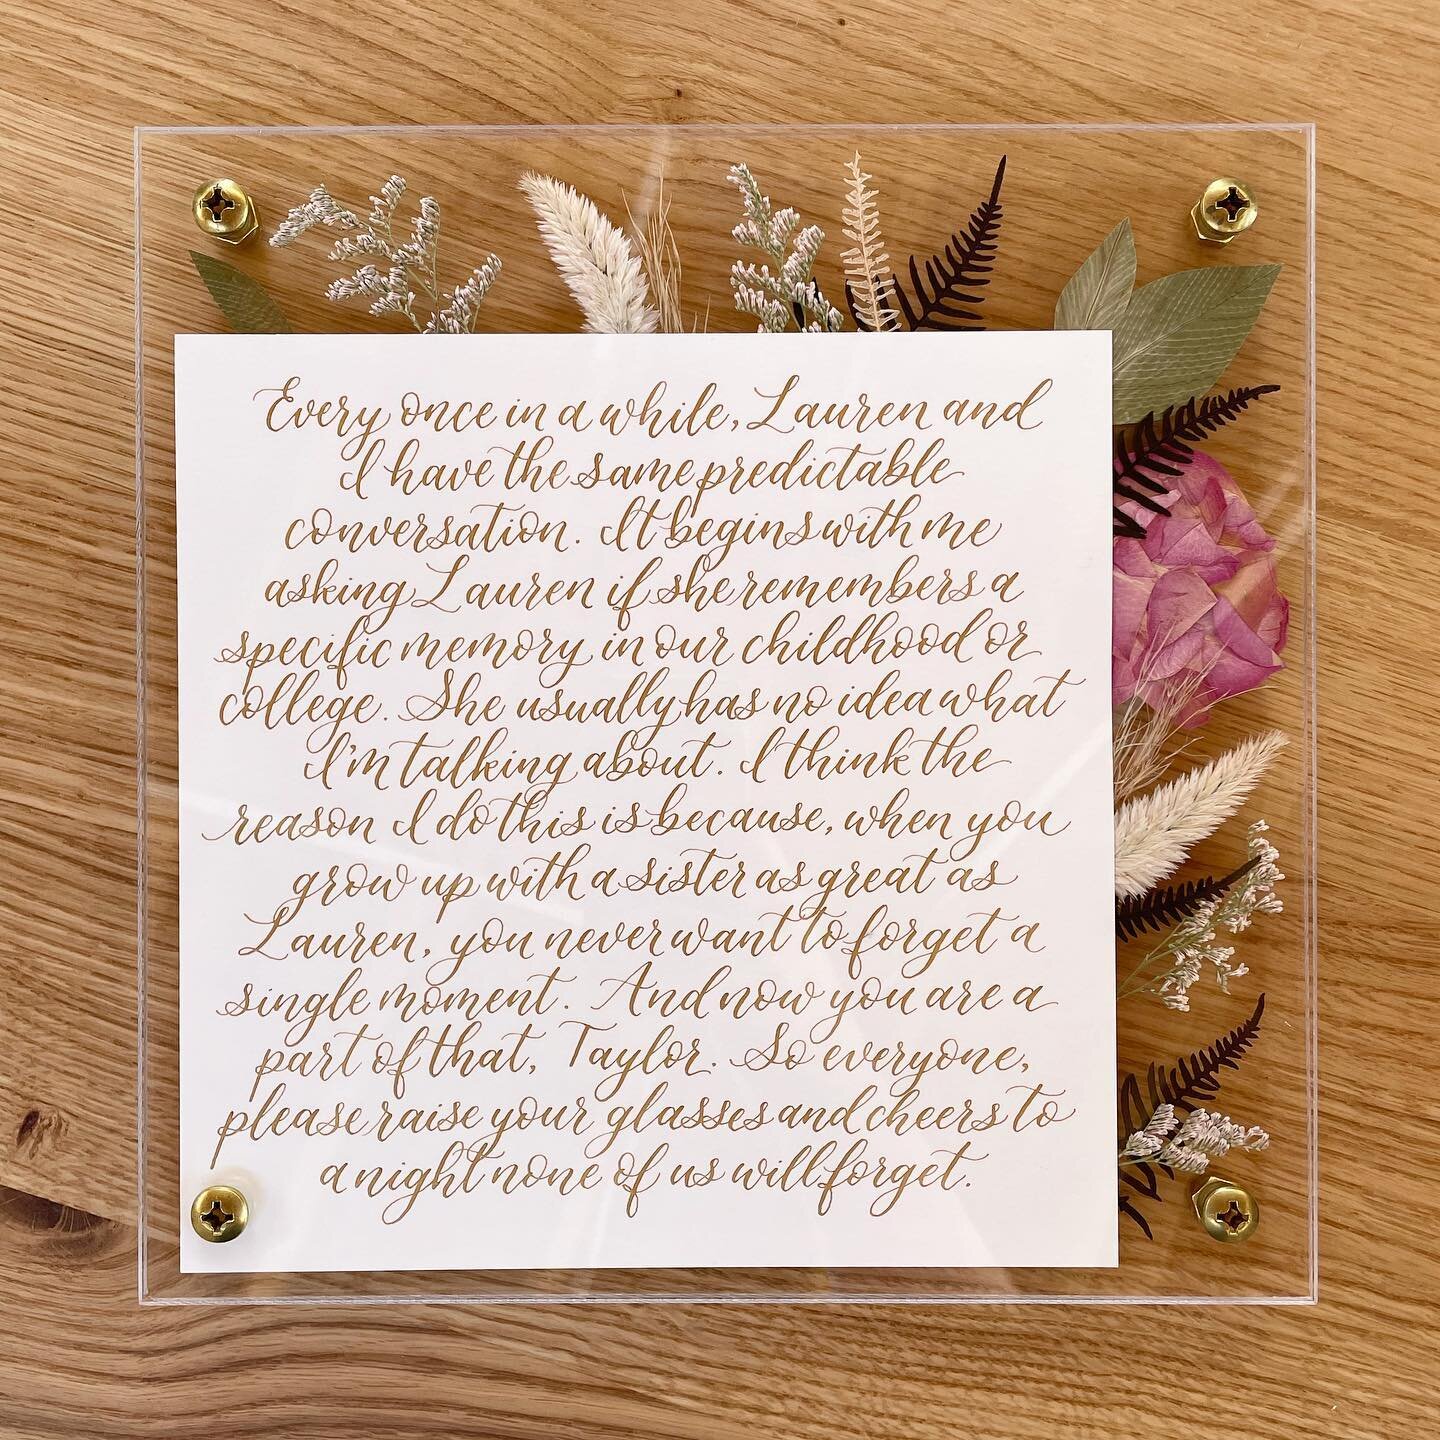 Every once in a while, Lauren and
I have the same predictable
conversation. It begins with me
asking Lauren if she remembers a
specific memory in our childhood or
college. She usually has no idea what
I'm talking about. I think the
reason I do this is because, when you
grow up with a sister as great as
Lauren, you never want to forget a
single moment. And now you are a
part of that, Taylor. So everyone,
please raise your glasses and cheers to
a night none of us will forget.